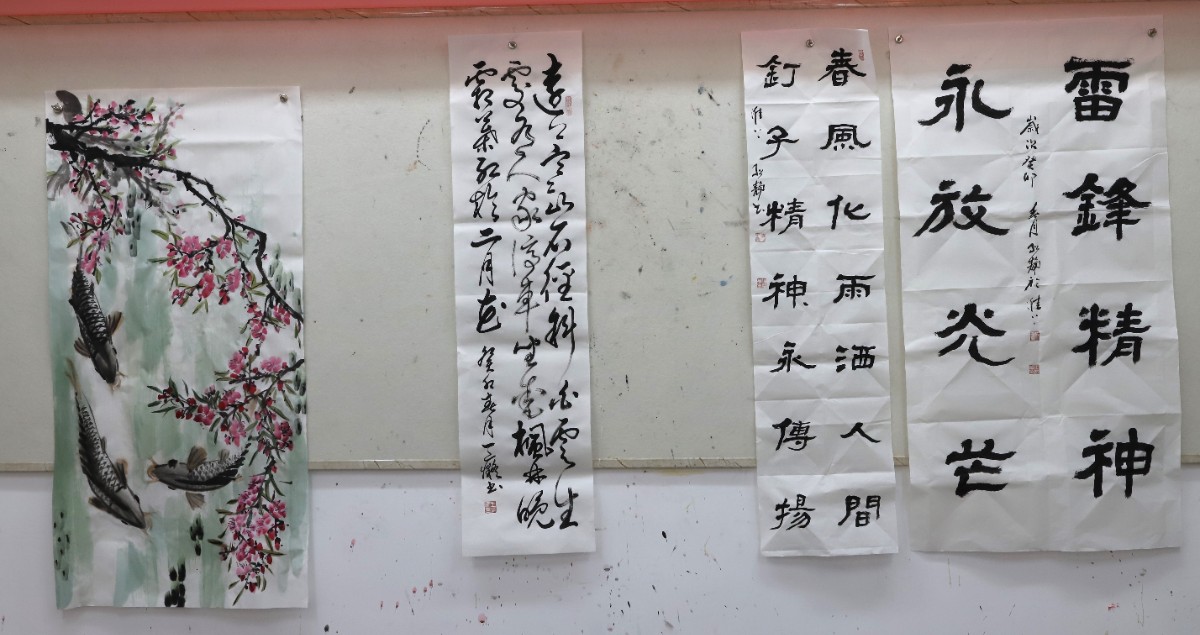 雷鋒精神
永放光芒
歲次癸卯 春月
春風化雨洒人間
釘子精神永傳揚
遠上寒山石徑斜白雲生
處有人家停車坐愛楓林晚
霜葉紅於二月花
癸卯春月一癡書